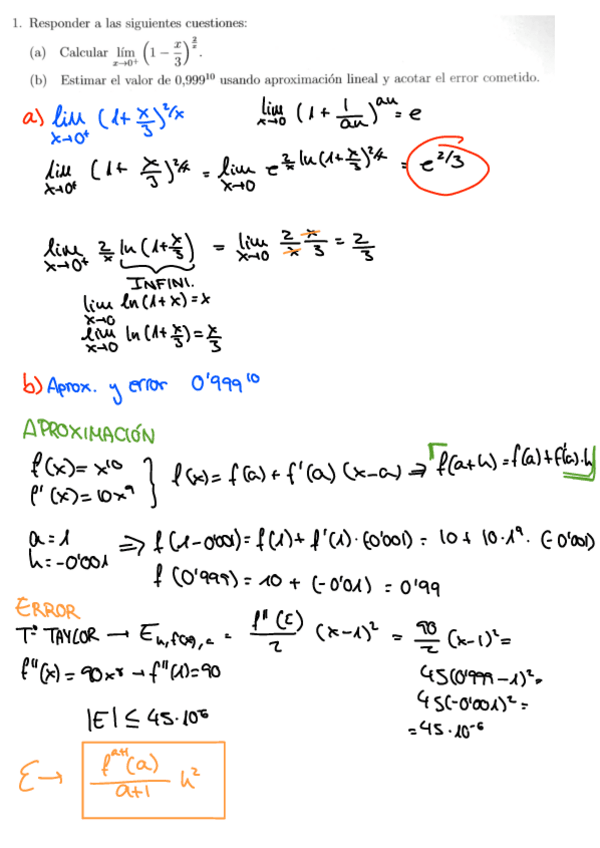 1. Responder a las siguientes cuestiones:
(a) Calcular lím x→0⁺ (1 − x/3)^(2/x).
(b) Estimar el valor de 0,999¹⁰ usando aproximación lineal y acotar el error cometido.
a) lim x→0⁺ (1+ x/3)^2/x   lim x→0 (1 + 1/an)^an = e
lim x→0⁺ (1+ x/3)^2/x = lim x→0 e^(2/x ln(1+x/3)^2/x) = e^2/3
lim x→0⁺ 2/x ln(1+x/3) = lim x→0 2/x x/3 = 2/3
INFINI.
lim x→0 ln(1+x) = x
lim x→0 ln(1+x/3) = x/3
b) Aprox. y error 0'999¹⁰
APROXIMACIÓN
f(x) = x¹⁰
f'(x) = 10x⁹ } f(x) = f(a) + f'(a) (x-a) ⇒ f(a+h) = f(a) + f'(a)·h
a = 1
h = -0'001 ⇒ f(1-0'001) = f(1) + f'(1)·(-0'001) = 10 + 10·1⁹·(-0'001)
f(0'999) = 10 + (-0'01) = 0'99
ERROR
Tª TAYLOR → E n,f(x),a = f''(c)/2 (x-1)² = 90/2 (x-1)² =
f''(x) = 90x⁸ → f''(1) = 90   45(0'999-1)² =
45(-0'001)² =
|E| ≤ 45·10⁻⁶   = 45·10⁻⁶
E → f^(a+1)(a)/a+1 h²